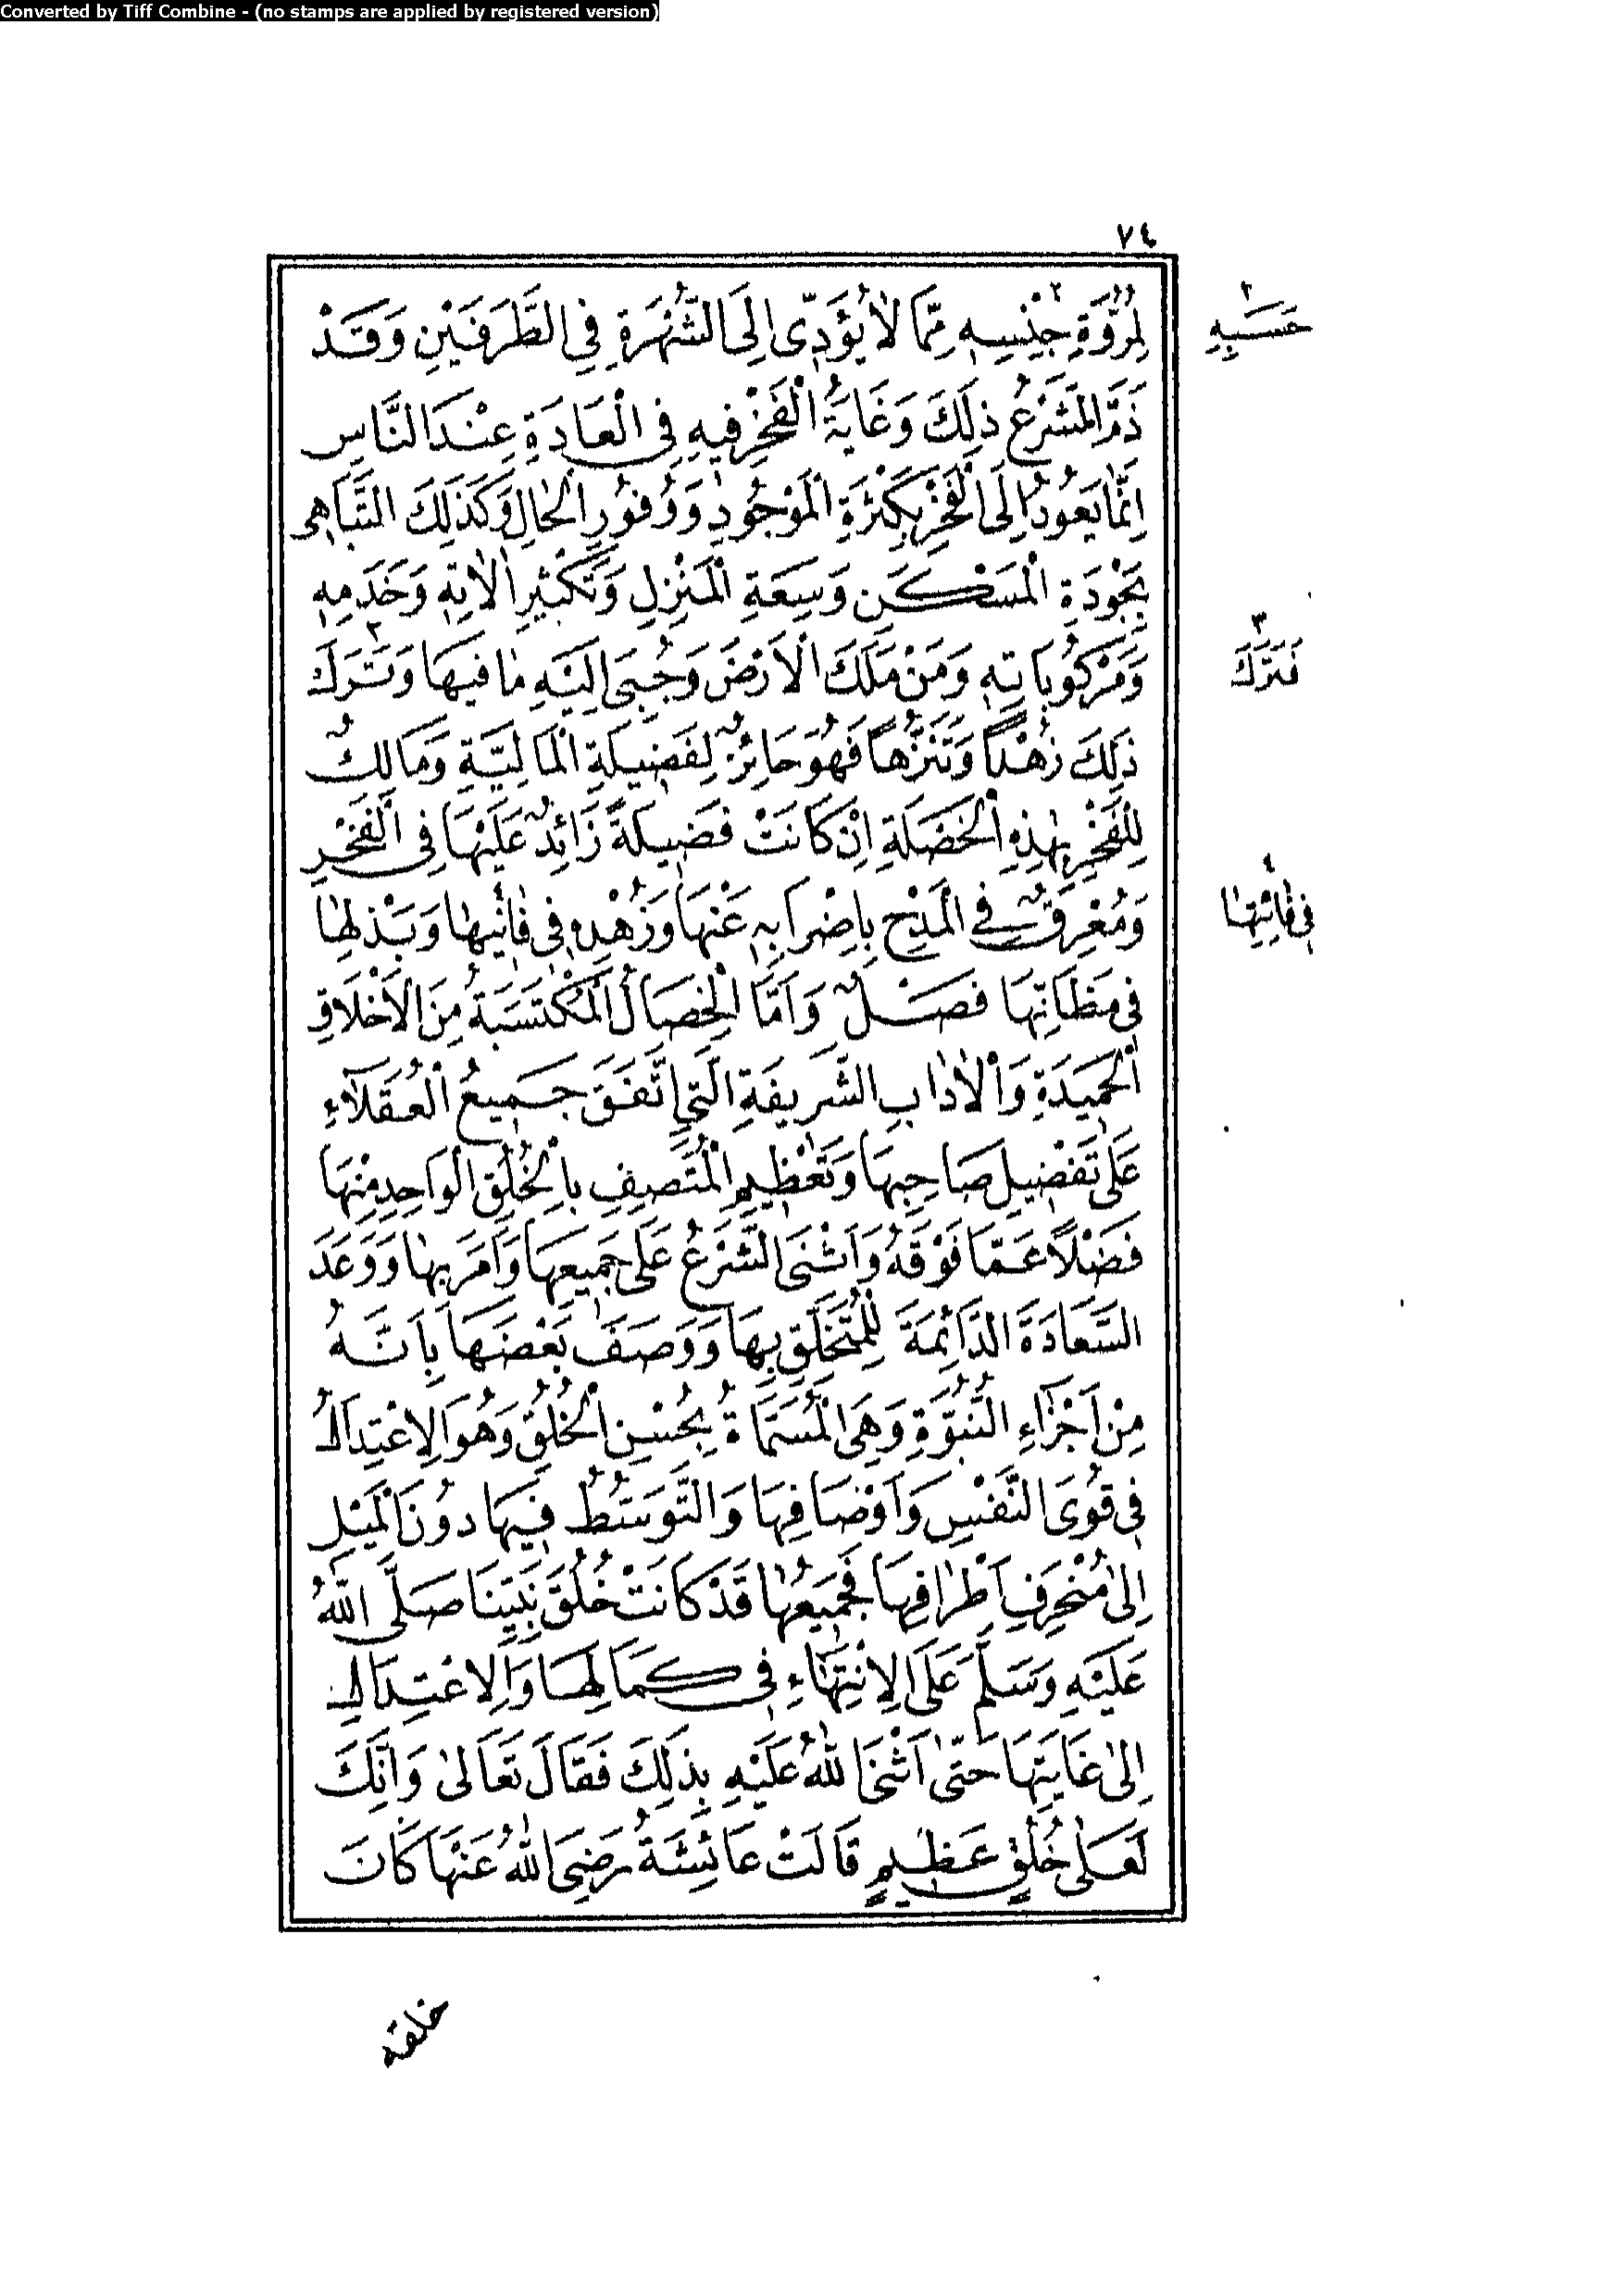 Converted by Tiff Combine - (no stamps are applied by registered version)
٧٤
لِمُرُوَّةِ جِنْسِهِ ٢ مِمَّا لَا يُؤَدِّى اِلَى الشُّهْرَةِ فِى الطَّرَفَيْنِ وَقَدْ
حَسَبِهِ ٢
ذَمَّ الشَّرْعُ ذٰلِكَ وَغَايَةُ الْفَخْرِ فِيهِ فِى الْعَادَةِ عِنْدَ النَّاسِ
اِنَّمَا يَعُودُ اِلَى الْفَخْرِ بِكَثْرَةِ الْمَوْجُودِ وَوُفُورِ الْحَالِ وَكَذٰلِكَ التَّبَاهِى
بِجَوْدَةِ الْمَسْكَنِ وَسِعَةِ الْمَنْزِلِ وَتَكْثِيرِ اٰلَاتِهِ وَخَدَمِهِ
وَمَرْكُوبَاتِهِ وَمَنْ مَلَكَ الْاَرْضَ وَجُبِىَ اِلَيْهِ مَا فِيهَا وَتَرَكَ ٣
فَتَرَكَ ٣
ذٰلِكَ زُهْدًا وَتَنَزُّهًا فَهُوَ حَائِزٌ لِفَضِيلَةِ الْمَالِيَّةِ وَمَالِكٌ
لِلْفَخْرِ بِهٰذِهِ الْخَصْلَةِ اِنْ كَانَتْ فَضِيلَةً زَائِدٌ عَلَيْهَا فِى الْفَخْرِ
وَمُعْرِقٌ فِى الْمَدْحِ بِاِضْرَابِهِ عَنْهَا وَزُهْدِهِ فِى فَانِيهَا ٤ وَبَذْلِهَا
فِى فَائِتِهَا ٤
فِى مَظَانِّهَا فَصْلٌ وَاَمَّا الْخِصَالُ الْمُكْتَسَبَةُ مِنَ الْاَخْلَاقِ
الْحَمِيدَةِ وَالْاٰدَابِ الشَّرِيفَةِ الَّتِى اتَّفَقَ جَمِيعُ الْعُقَلَاءِ
عَلَى تَفْضِيلِ صَاحِبِهَا وَتَعْظِيمِ الْمُتَّصِفِ بِالْخُلُقِ الْوَاحِدِ مِنْهَا
فَضْلًا عَمَّا فَوْقَهُ وَاَثْنَى الشَّرْعُ عَلَى جَمِيعِهَا وَاَمَرَ بِهَا وَوَعَدَ
السَّعَادَةَ الدَّائِمَةَ لِلْمُتَخَلِّقِ بِهَا وَوَصَفَ بَعْضَهَا بِاَنَّهُ
مِنْ اَجْزَاءِ النُّبُوَّةِ وَهِىَ الْمُسَمَّاةُ بِحُسْنِ الْخُلُقِ وَهُوَ الْاِعْتِدَالُ
فِى قُوَى النَّفْسِ وَاَوْصَافِهَا وَالتَّوَسُّطُ فِيهَا دُونَ الْمَيْلِ
اِلٰى مُنْحَرِفِ اَطْرَافِهَا فَجَمِيعُهَا قَدْ كَانَتْ خُلُقَ نَبِيِّنَا صَلَّى اللّٰهُ
عَلَيْهِ وَسَلَّمَ عَلَى الْاِنْتِهَاءِ فِى كَمَالِهَا وَالْاِعْتِدَالِ
اِلٰى غَايَتِهَا حَتّٰى اَثْنَى اللّٰهُ عَلَيْهِ بِذٰلِكَ فَقَالَ تَعَالٰى وَاِنَّكَ
لَعَلٰى خُلُقٍ عَظِيمٍ قَالَتْ عَائِشَةُ رَضِىَ اللّٰهُ عَنْهَا كَانَ
خلقه